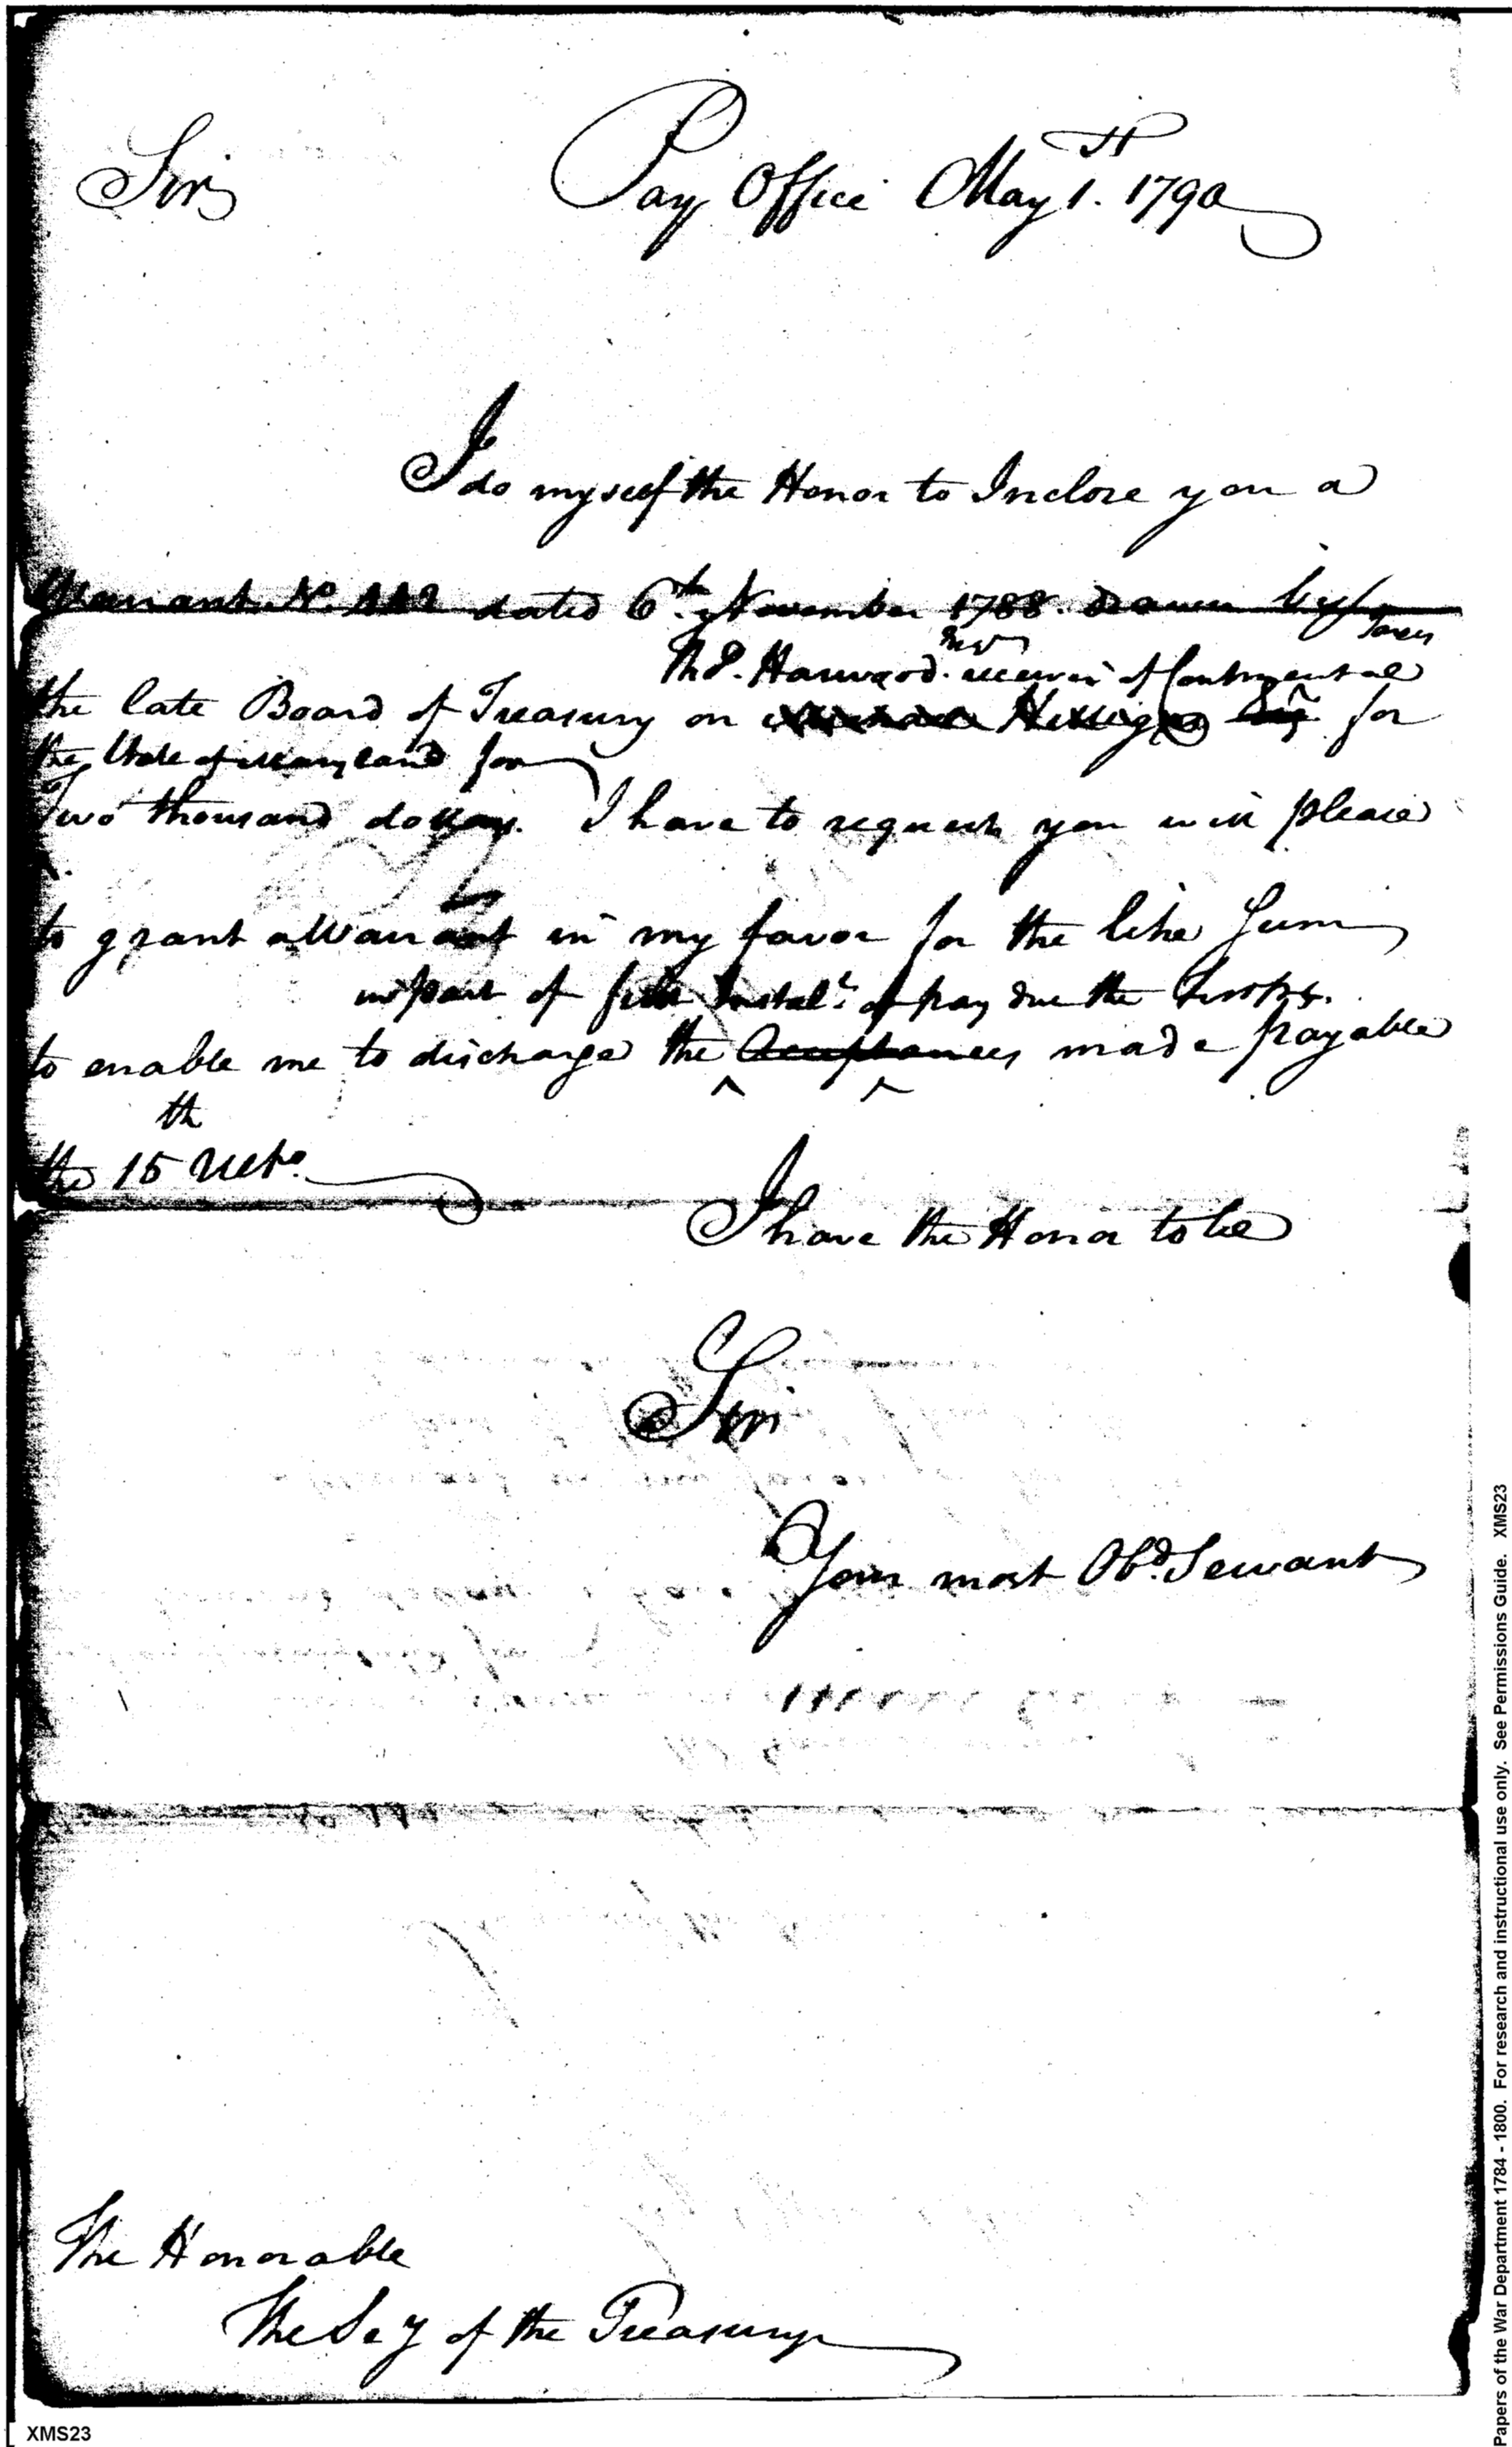 Sir
Pay Office May 1.st 1790
I do myself the Honor to Inclose you a
Warrant No. dated 6th. November 1788. Drawn by
Taxes
Th. Harwood. receiver of Continental
the late Board of Treasury on Hillegas for
the State of Maryland for
Two thousand dollars. I have to request you will please
to grant a Warrant in my favor for the like Sum
in part of first Instalt. of pay due the troops.
to enable me to discharge the Acceptances made payable
the 15th Ulto.
I have the Honor to be
Sir
Your most Obd. Servant
The Honorable
The Sey of the Treasury
XMS23
Papers of the War Department 1784 - 1800. For research and instructional use only. See Permissions Guide. XMS23